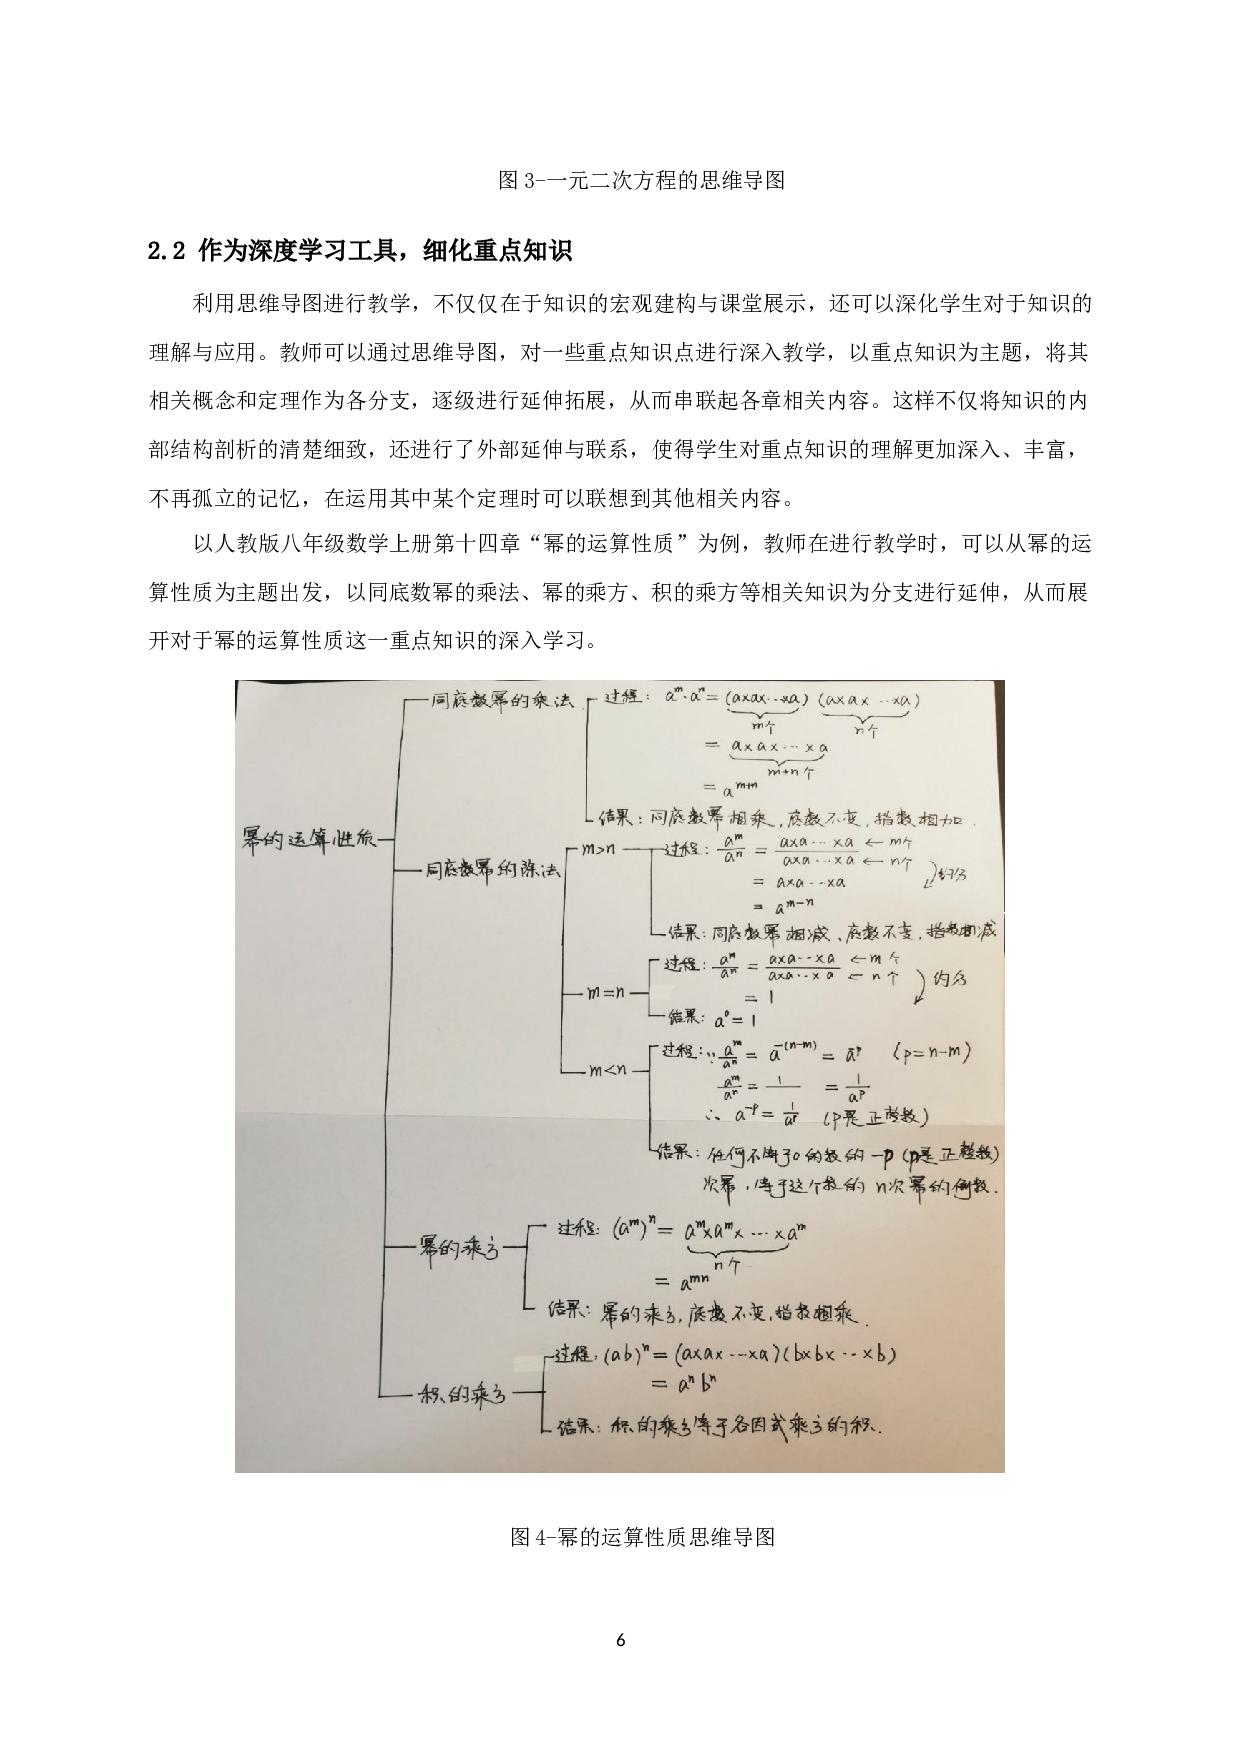 图 3-一元二次方程的思维导图
2.2 作为深度学习工具，细化重点知识
利用思维导图进行教学，不仅仅在于知识的宏观建构与课堂展示，还可以深化学生对于知识的
理解与应用。教师可以通过思维导图，对一些重点知识点进行深入教学，以重点知识为主题，将其
相关概念和定理作为各分支，逐级进行延伸拓展，从而串联起各章相关内容。这样不仅将知识的内
部结构剖析的清楚细致，还进行了外部延伸与联系，使得学生对重点知识的理解更加深入、丰富，
不再孤立的记忆，在运用其中某个定理时可以联想到其他相关内容。
以人教版八年级数学上册第十四章“幂的运算性质”为例，教师在进行教学时，可以从幂的运
算性质为主题出发，以同底数幂的乘法、幂的乘方、积的乘方等相关知识为分支进行延伸，从而展
开对于幂的运算性质这一重点知识的深入学习。
幂的运算性质
同底数幂的乘法
过程：a^m·a^n=(a×a×…×a)(a×a×…×a)
m个 n个
=a×a×…×a
m+n个
=a^{m+n}
结果：同底数幂相乘，底数不变，指数相加.
同底数幂的除法
m>n
过程：a^m/a^n = (a×a…×a)/(a×a…×a) ←m个 ←n个
约分
=a×a…×a
=a^{m-n}
结果：同底数幂相减，底数不变，指数相减
m=n
过程：a^m/a^n = (a×a…×a)/(a×a…×a) ←m个 ←n个
约分
=1
结果：a^0=1
m<n
过程：∵a^m/a^n = a^{-(n-m)} = a^{-p} (p=n-m)
a^m/a^n = 1/ = 1/a^p
∴ a^{-p}=1/a^p (p是正整数)
结果：任何不等于0的数的-p(p是正整数)
次幂，等于这个数的n次幂的倒数.
幂的乘方
过程：(a^m)^n=a^m×a^m×…×a^m
n个
=a^{mn}
结果：幂的乘方，底数不变，指数相乘.
积的乘方
过程：(ab)^n=(a×a×…×a)(b×b×…×b)
=a^n b^n
结果：积的乘方等于各因式乘方的积.
图 4-幂的运算性质思维导图
6